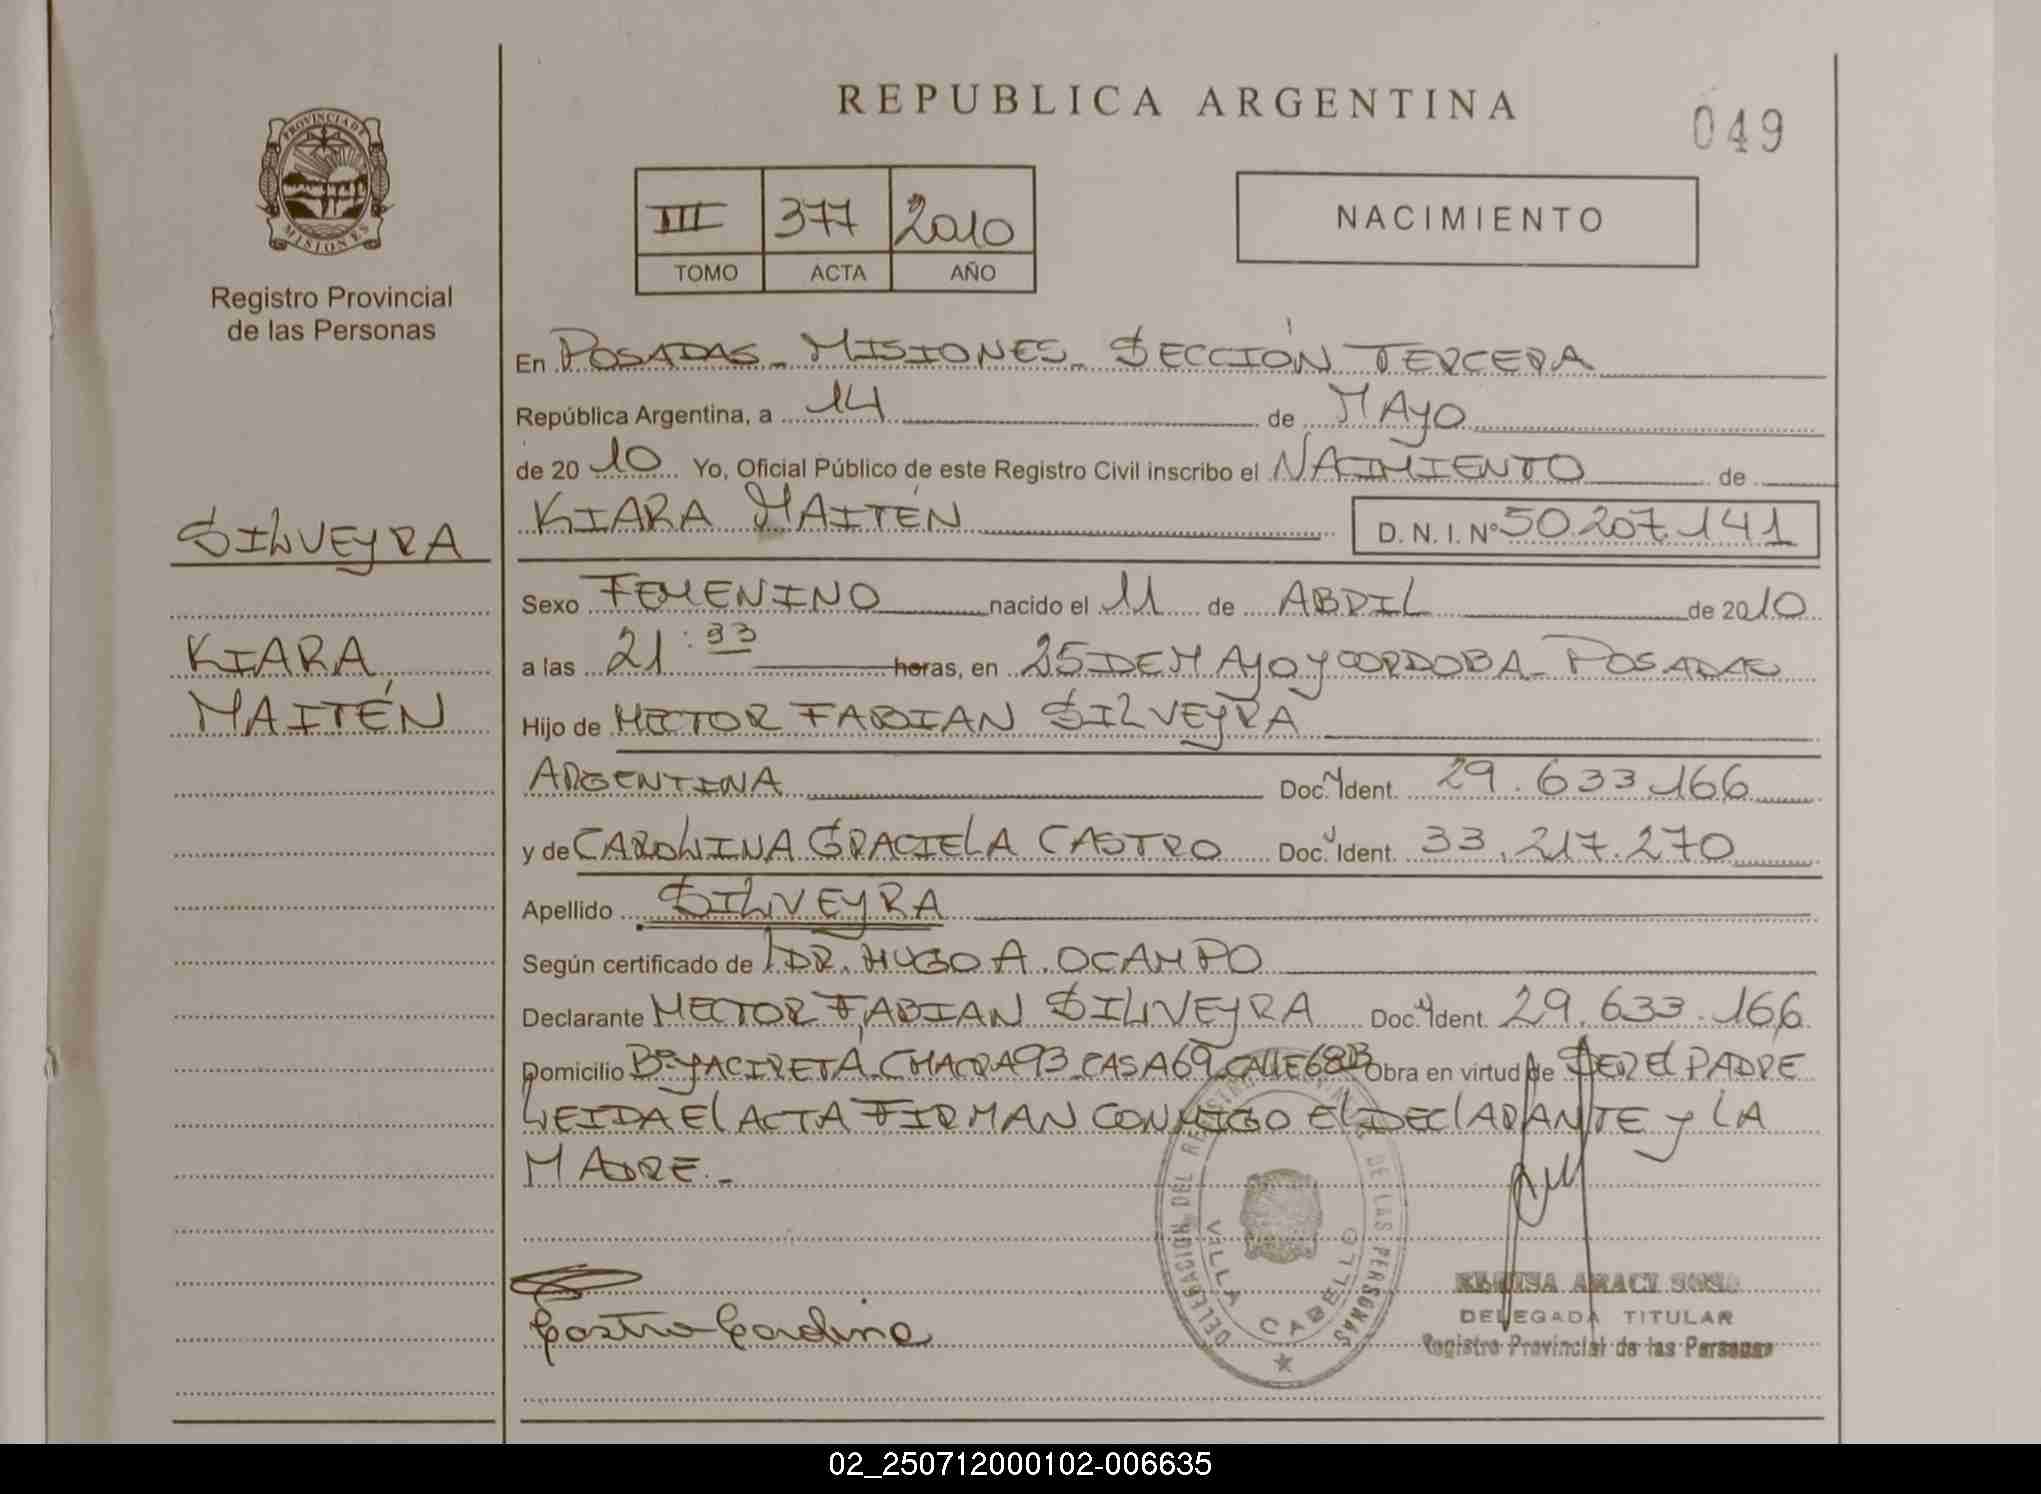 REPUBLICA ARGENTINA
049
PROVINCIA DE
MISIONES
Registro Provincial
de las Personas
III 377 2010
TOMO ACTA AÑO
NACIMIENTO
En POSADAS - MISIONES - SECCIÓN TERCERA
República Argentina, a 14 de MAYO
de 20 10 Yo, Oficial Público de este Registro Civil inscribo el NACIMIENTO de
SILVEYRA
KIARA MAITÉN D. N. I. Nº 50.207.141
Sexo FEMENINO nacido el 11 de ABRIL de 2010
KIARA
a las 21:33 horas, en 25 DE MAYO Y CORDOBA - POSADAS
MAITÉN
Hijo de HECTOR FABIAN SILVEYRA
ARGENTINA Doc. Ident. 29.633.166
y de CAROLINA GRACIELA CASTRO Doc. Ident. 33.217.270
Apellido SILVEYRA
Según certificado de DR. HUGO A. OCAMPO
Declarante HECTOR FABIAN SILVEYRA Doc. Ident. 29.633.166
Domicilio Bº YACIRETÁ - CHACRA 93 - CASA 69 - CALLE 68B Obra en virtud de SER EL PADRE
LEIDA El ACTA FIRMAN CONMIGO El DEClARANTE y LA
MADRE.-
DELEGACION DEL DE LAS PERSONAS
VILLA CABELLO
ARACI
DELEGADA TITULAR
Registro Provincial de las Personas
Castro Carolina
02_250712000102-006635